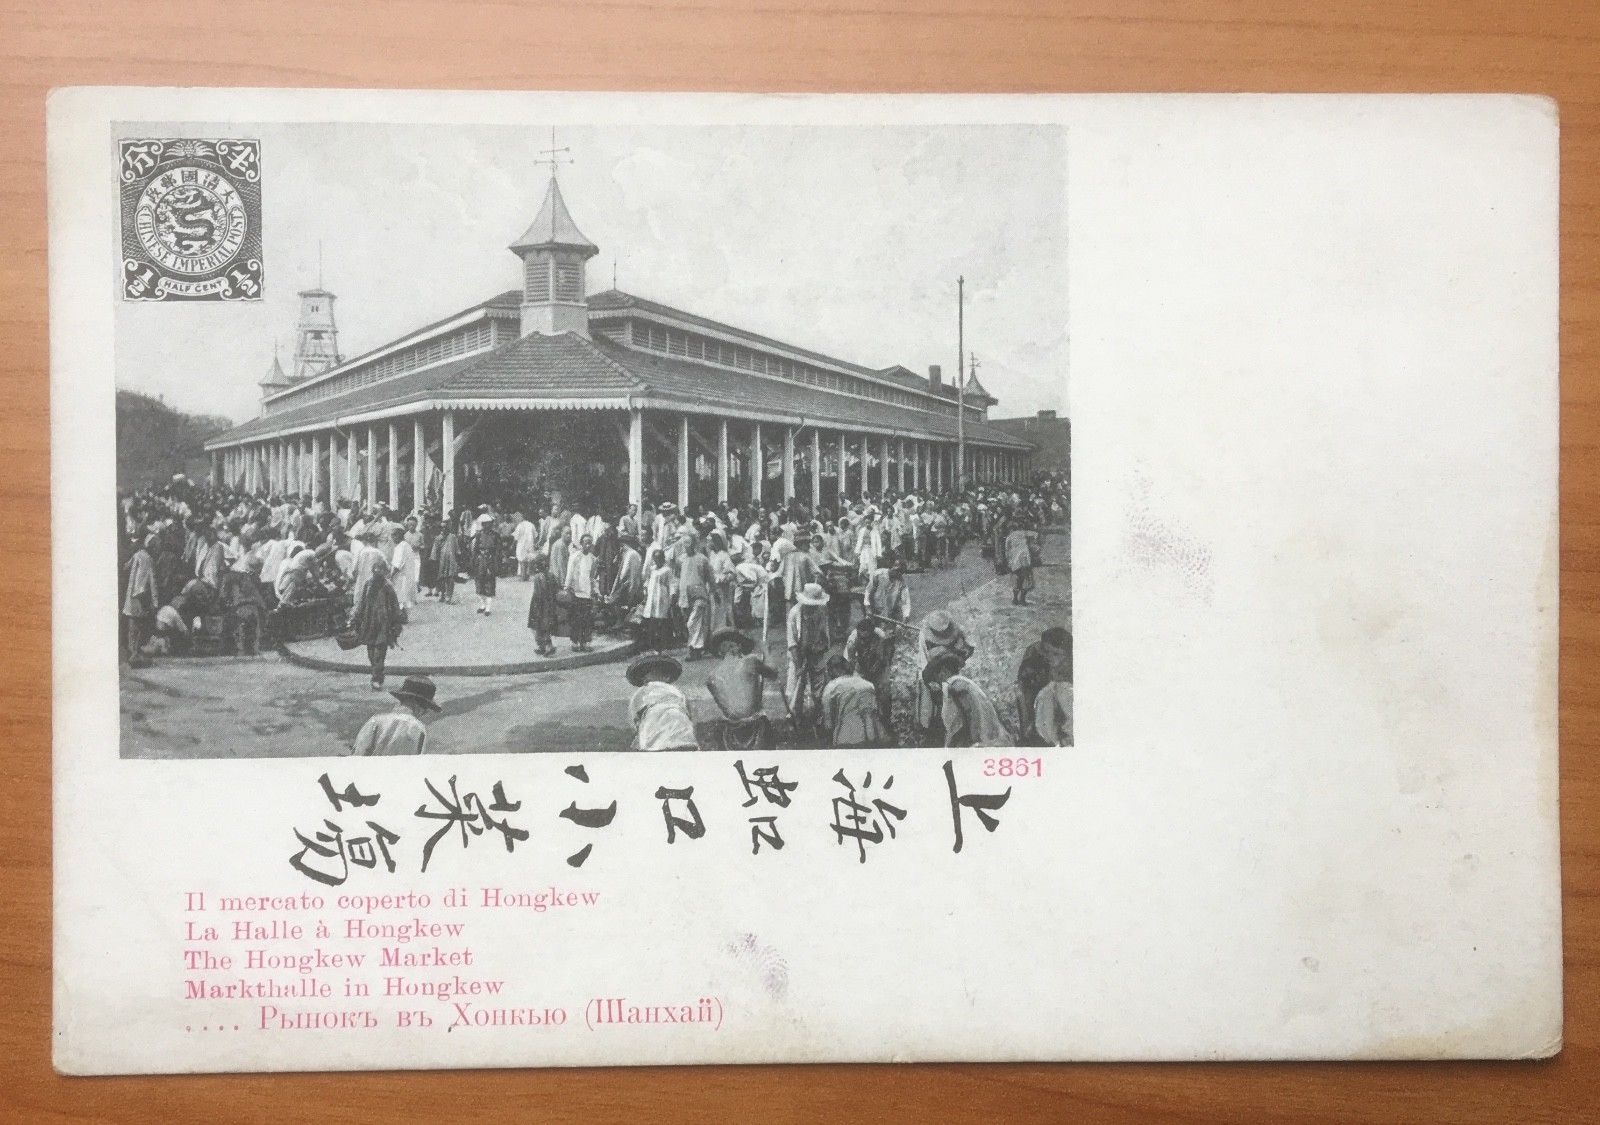 分 半
大清國郵政
CHINESE IMPERIAL POST
½ HALF CENT ½
3861
上海虹口小菜場
Il mercato coperto di Hongkew
La Halle à Hongkew
The Hongkew Market
Markthalle in Hongkew
.... Рынокъ въ Хонкью (Шанхай)